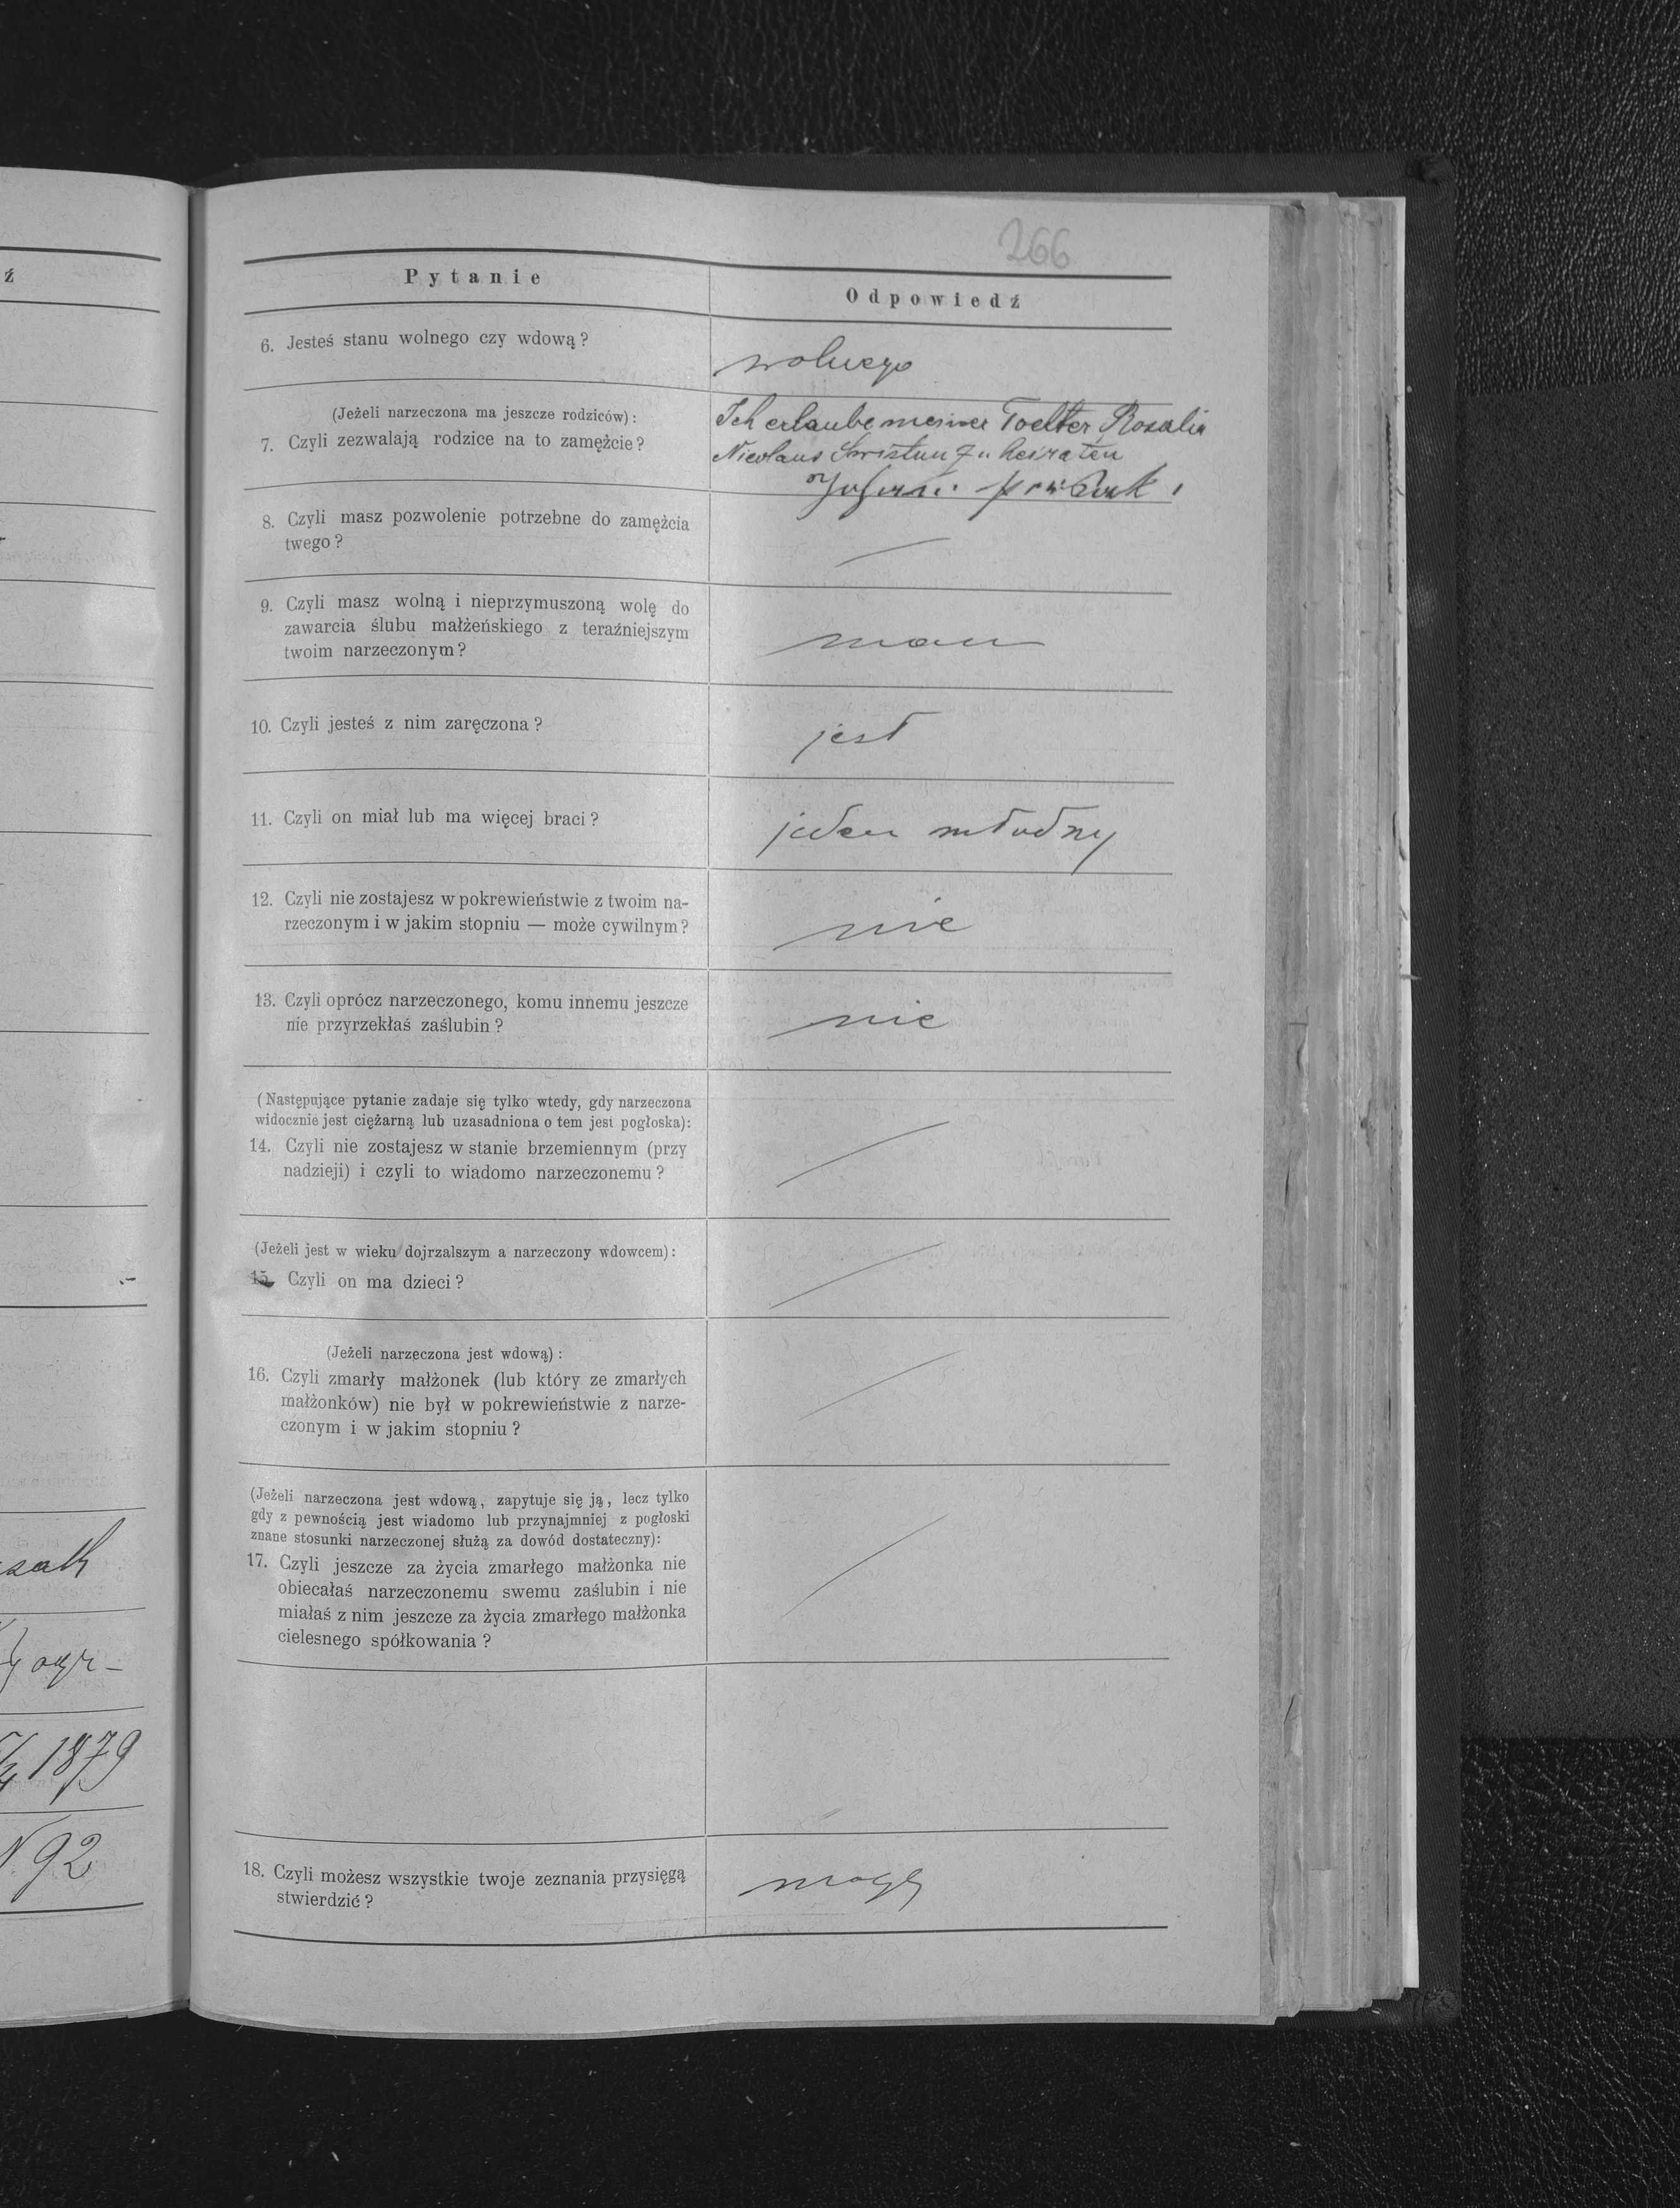 ź
266
Pytanie
Odpowiedź
6. Jesteś stanu wolnego czy wdową?
wolnego
(Jeżeli narzeczona ma jeszcze rodziców):
7. Czyli zezwalają rodzice na to zamężcie?
Ich erlaube meiner Toelter Rosalia
Nicolaus zu heiraten
8. Czyli masz pozwolenie potrzebne do zamężcia
twego?
9. Czyli masz wolną i nieprzymuszoną wolę do
zawarcia ślubu małżeńskiego z teraźniejszym
twoim narzeczonym?
mam
10. Czyli jesteś z nim zaręczona?
jest
11. Czyli on miał lub ma więcej braci?
jeden
12. Czyli nie zostajesz w pokrewieństwie z twoim na-
rzeczonym i w jakim stopniu — może cywilnym?
nie
13. Czyli oprócz narzeczonego, komu innemu jeszcze
nie przyrzekłaś zaślubin?
nie
(Następujące pytanie zadaje się tylko wtedy, gdy narzeczona
widocznie jest ciężarną lub uzasadniona o tem jest pogłoska):
14. Czyli nie zostajesz w stanie brzemiennym (przy
nadzieji) i czyli to wiadomo narzeczonemu?
(Jeżeli jest w wieku dojrzalszym a narzeczony wdowcem):
15. Czyli on ma dzieci?
(Jeżeli narzeczona jest wdową):
16. Czyli zmarły małżonek (lub który ze zmarłych
małżonków) nie był w pokrewieństwie z narze-
czonym i w jakim stopniu?
(Jeżeli narzeczona jest wdową, zapytuje się ją, lecz tylko
gdy z pewnością jest wiadomo lub przynajmniej z pogłoski
znane stosunki narzeczonej służą za dowód dostateczny):
17. Czyli jeszcze za życia zmarłego małżonka nie
obiecałaś narzeczonemu swemu zaślubin i nie
miałaś z nim jeszcze za życia zmarłego małżonka
cielesnego spółkowania?
1879
N 92
18. Czyli możesz wszystkie twoje zeznania przysięgą
stwierdzić?
mogę